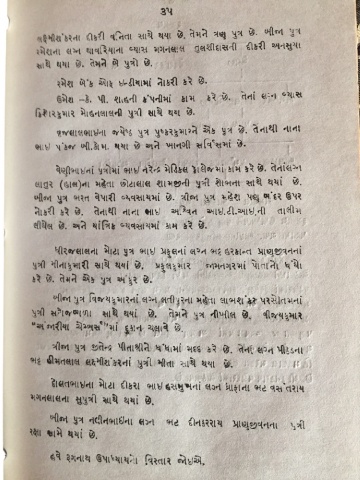 ૩૫
લક્ષ્મીશંકરના દીકરી વનિતા સાથે થયા છે. તેમને ત્રણ પુત્ર છે. બીજા પુત્ર
રમેશના લગ્ન થાવરિયાના વ્યાસ મગનલાલ તુલશીદાસની દીકરી અનસુયા
સાથે થયા છે. તેમને બે પુત્રી છે.
રમેશ બેંક ઓફ ઇન્ડીયામાં નોકરી કરે છે.
ઉમેશ -કે. પી. શાહની કંપનીમાં કામ કરે છે. તેનાં લગ્ન વ્યાસ
કિશોરકુમાર મોહનલાલની પુત્રી સાથે થયા છે.
વ્રજલાલભાઇના જયેષ્ઠ પુત્ર પુષ્કરકુમારને એક પુત્ર છે. તેનાથી નાના
ભાઇ પંકજ બી.કોમ. થયા છે અને ખાનગી સર્વિસમાં છે.
વેણીભાઇનાં પુત્રોમાં ભાઇ નરેન્દ્ર મેડિકલ કોલેજમાં કામ કરે છે. તેનાં લગ્ન
લાતુર (હાલ)ના મહેતા છોટાલાલ શામજીની પુત્રી શોભના સાથે થયાં છે.
બીજા પુત્ર ભરત વેપારી વ્યવસાયમાં છે. ત્રીજા પુત્ર મહેશ પણ બંદર ઉપર
નોકરી કરે છે. તેનાથી નાના ભાઇ અશ્વિન આઇ.ટી.આઇ.ની તાલીમ
લીધેલ છે. અને યાંત્રિક વ્યવસાયમાં કામ કરે છે.
ધીરજલાલના મોટા પુત્ર ભાઇ પ્રફુલનાં લગ્ન ભટ્ટ હરકાન્ત પ્રાણજીવનનાં
પુત્રી મીનાકુમારી સાથે થયાં છે. પ્રફુલકુમાર જામનગરમાં પોતાનો ધંધો
કરે છે. તેમને એક પુત્ર અંકુર છે.
બીજા પુત્ર વિજયકુમારનાં લગ્ન લતીપુરના મહેતા લાભશંકર પરસોતમનાં
પુત્રી સરોજબાળા સાથે થયાં છે. તેમના પુત્ર નીખીલ છે. વીજયકુમાર
ચેમ્બર્સ"માં દુકાન ચલાવે છે.
ત્રીજા પુત્ર જીતેન્દ્ર પીતાશ્રીને ધંધામાં મદદ કરે છે. તેનાં લગ્ન પીઠડના
ભટ્ટ હીંમતલાલ લક્ષ્મીશંકરનાં પુત્રી મીતા સાથે થયા છે.
દોલતભાઇના મોટા દીકરા ભાઇ હસમુખનાં લગ્ન મોફાના ભટ વસંતરાય
મગનલાલના સુપુત્રી સાથે થયાં છે.
બીજા પુત્ર નલીનભાઇના લગ્ન ભટ દીનકરરાય પ્રાણજીવનના પુત્રી
રક્ષા સાથે થયાં છે.
હવે રૂગનાથ ઉપાધ્યાયનો વિસ્તાર જોઇએ.